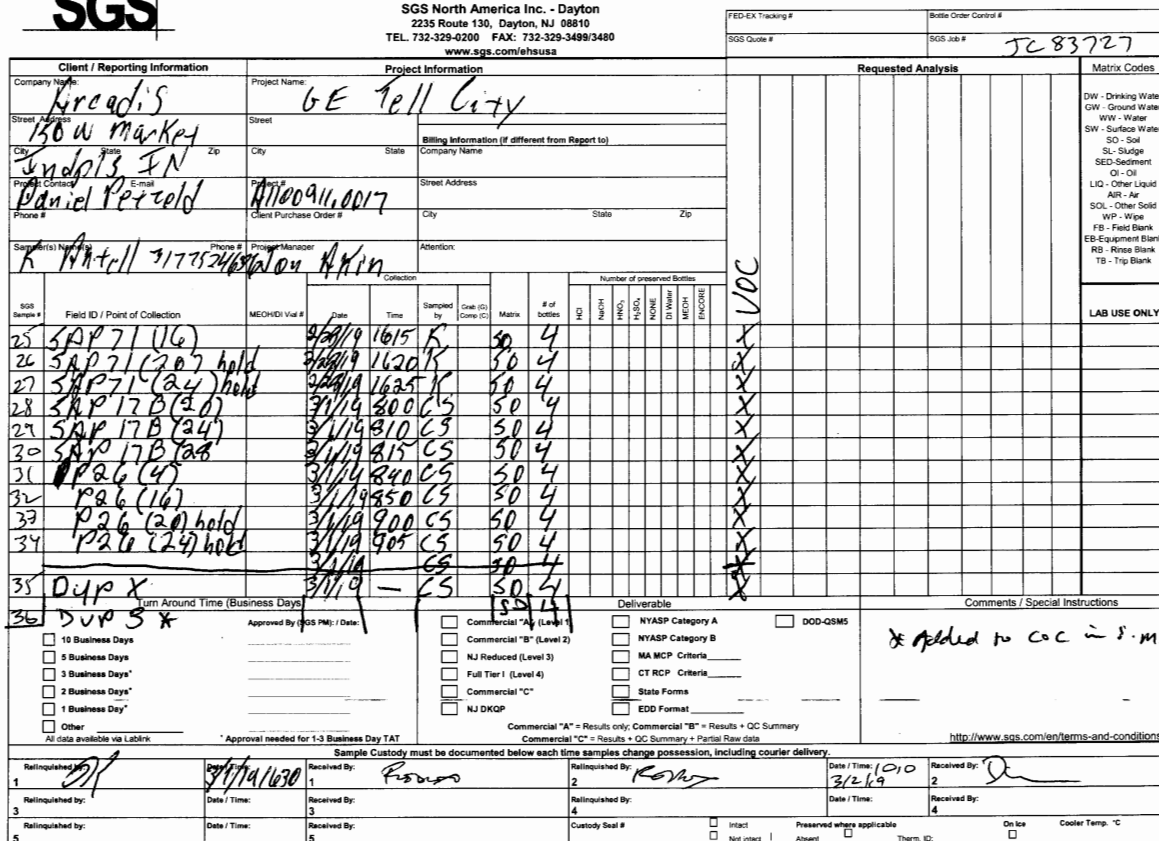 SGS
SGS North America Inc. - Dayton
2235 Route 130, Dayton, NJ 08810
TEL. 732-329-0200 FAX: 732-329-3499/3480
www.sgs.com/ehsusa
FED-EX Tracking #
Bottle Order Control #
SGS Quote #
SGS Job # JC 83727
Client / Reporting Information
Project Information
Requested Analysis
Matrix Codes
Company Name: Arcadis
Project Name: GE Tell City
Street Address 150 W Market
Street
Billing Information (if different from Report to)
City State Zip Indpls IN
City State
Company Name
Project Contact E-mail Daniel Petzold
Project # A1100911.0017
Street Address
Phone #
Client Purchase Order #
City State Zip
Sampler(s) Name(s) Phone # K Antell
Project Manager Jon Akin
Attention:
DW - Drinking Water
GW - Ground Water
WW - Water
SW - Surface Water
SO - Soil
SL- Sludge
SED-Sediment
OI - Oil
LIQ - Other Liquid
AIR - Air
SOL - Other Solid
WP - Wipe
FB - Field Blank
EB-Equipment Blank
RB - Rinse Blank
TB - Trip Blank
LAB USE ONLY
Collection
Number of preserved Bottles
SGS Sample #
Field ID / Point of Collection
MEOH/DI Vial #
Date
Time
Sampled by
Grab (G) Comp (C)
Matrix
# of bottles
HCl
NaOH
HNO3
H2SO4
NONE
DI Water
MEOH
ENCORE
VOC
25 SAP 71 (16) 2/28/19 1615 K SO 4 X
26 SAP 71 (20) hold 2/28/19 1620 K SO 4 X
27 SAP 71 (24) hold 2/28/19 1625 K SO 4 X
28 SAP 17B (20) 3/1/19 800 CS SO 4 X
29 SAP 17B (24) 3/1/19 810 CS SO 4 X
30 SAP 17B (28 3/1/19 815 CS SO 4 X
31 P26 (4) 3/1/19 840 CS SO 4 X
32 P26 (16) 3/1/19 850 CS SO 4 X
33 P26 (20) hold 3/1/19 900 CS SO 4 X
34 P26 (24) hold 3/1/19 905 CS SO 4 X
3/1/19 CS SO 4 X
35 Dup X 3/1/19 — CS SO 4 X
36 DUP 3 * SO 4
Turn Around Time (Business Days)
Deliverable
Comments / Special Instructions
Approved By (SGS PM): / Date:
10 Business Days
5 Business Days
3 Business Days*
2 Business Days*
1 Business Day*
Other
All data available via Lablink
* Approval needed for 1-3 Business Day TAT
Commercial "A" (Level 1)
Commercial "B" (Level 2)
NJ Reduced (Level 3)
Full Tier I (Level 4)
Commercial "C"
NJ DKQP
NYASP Category A
NYASP Category B
MA MCP Criteria
CT RCP Criteria
State Forms
EDD Format
DOD-QSM5
Commercial "A" = Results only; Commercial "B" = Results + QC Summary
Commercial "C" = Results + QC Summary + Partial Raw data
* Added to COC in S.M
http://www.sgs.com/en/terms-and-conditions
Sample Custody must be documented below each time samples change possession, including courier delivery.
Relinquished by: 1
Date / Time: 3/1/19/1630
Received By: 1
Relinquished By: 2
Date / Time: 1010 3/2/19
Received By: 2
Relinquished by: 3
Date / Time:
Received By: 3
Relinquished By: 4
Date / Time:
Received By: 4
Relinquished by: 5
Date / Time:
Received By: 5
Custody Seal #
Intact
Not intact
Preserved where applicable
Absent
Therm. ID:
On Ice
Cooler Temp. °C